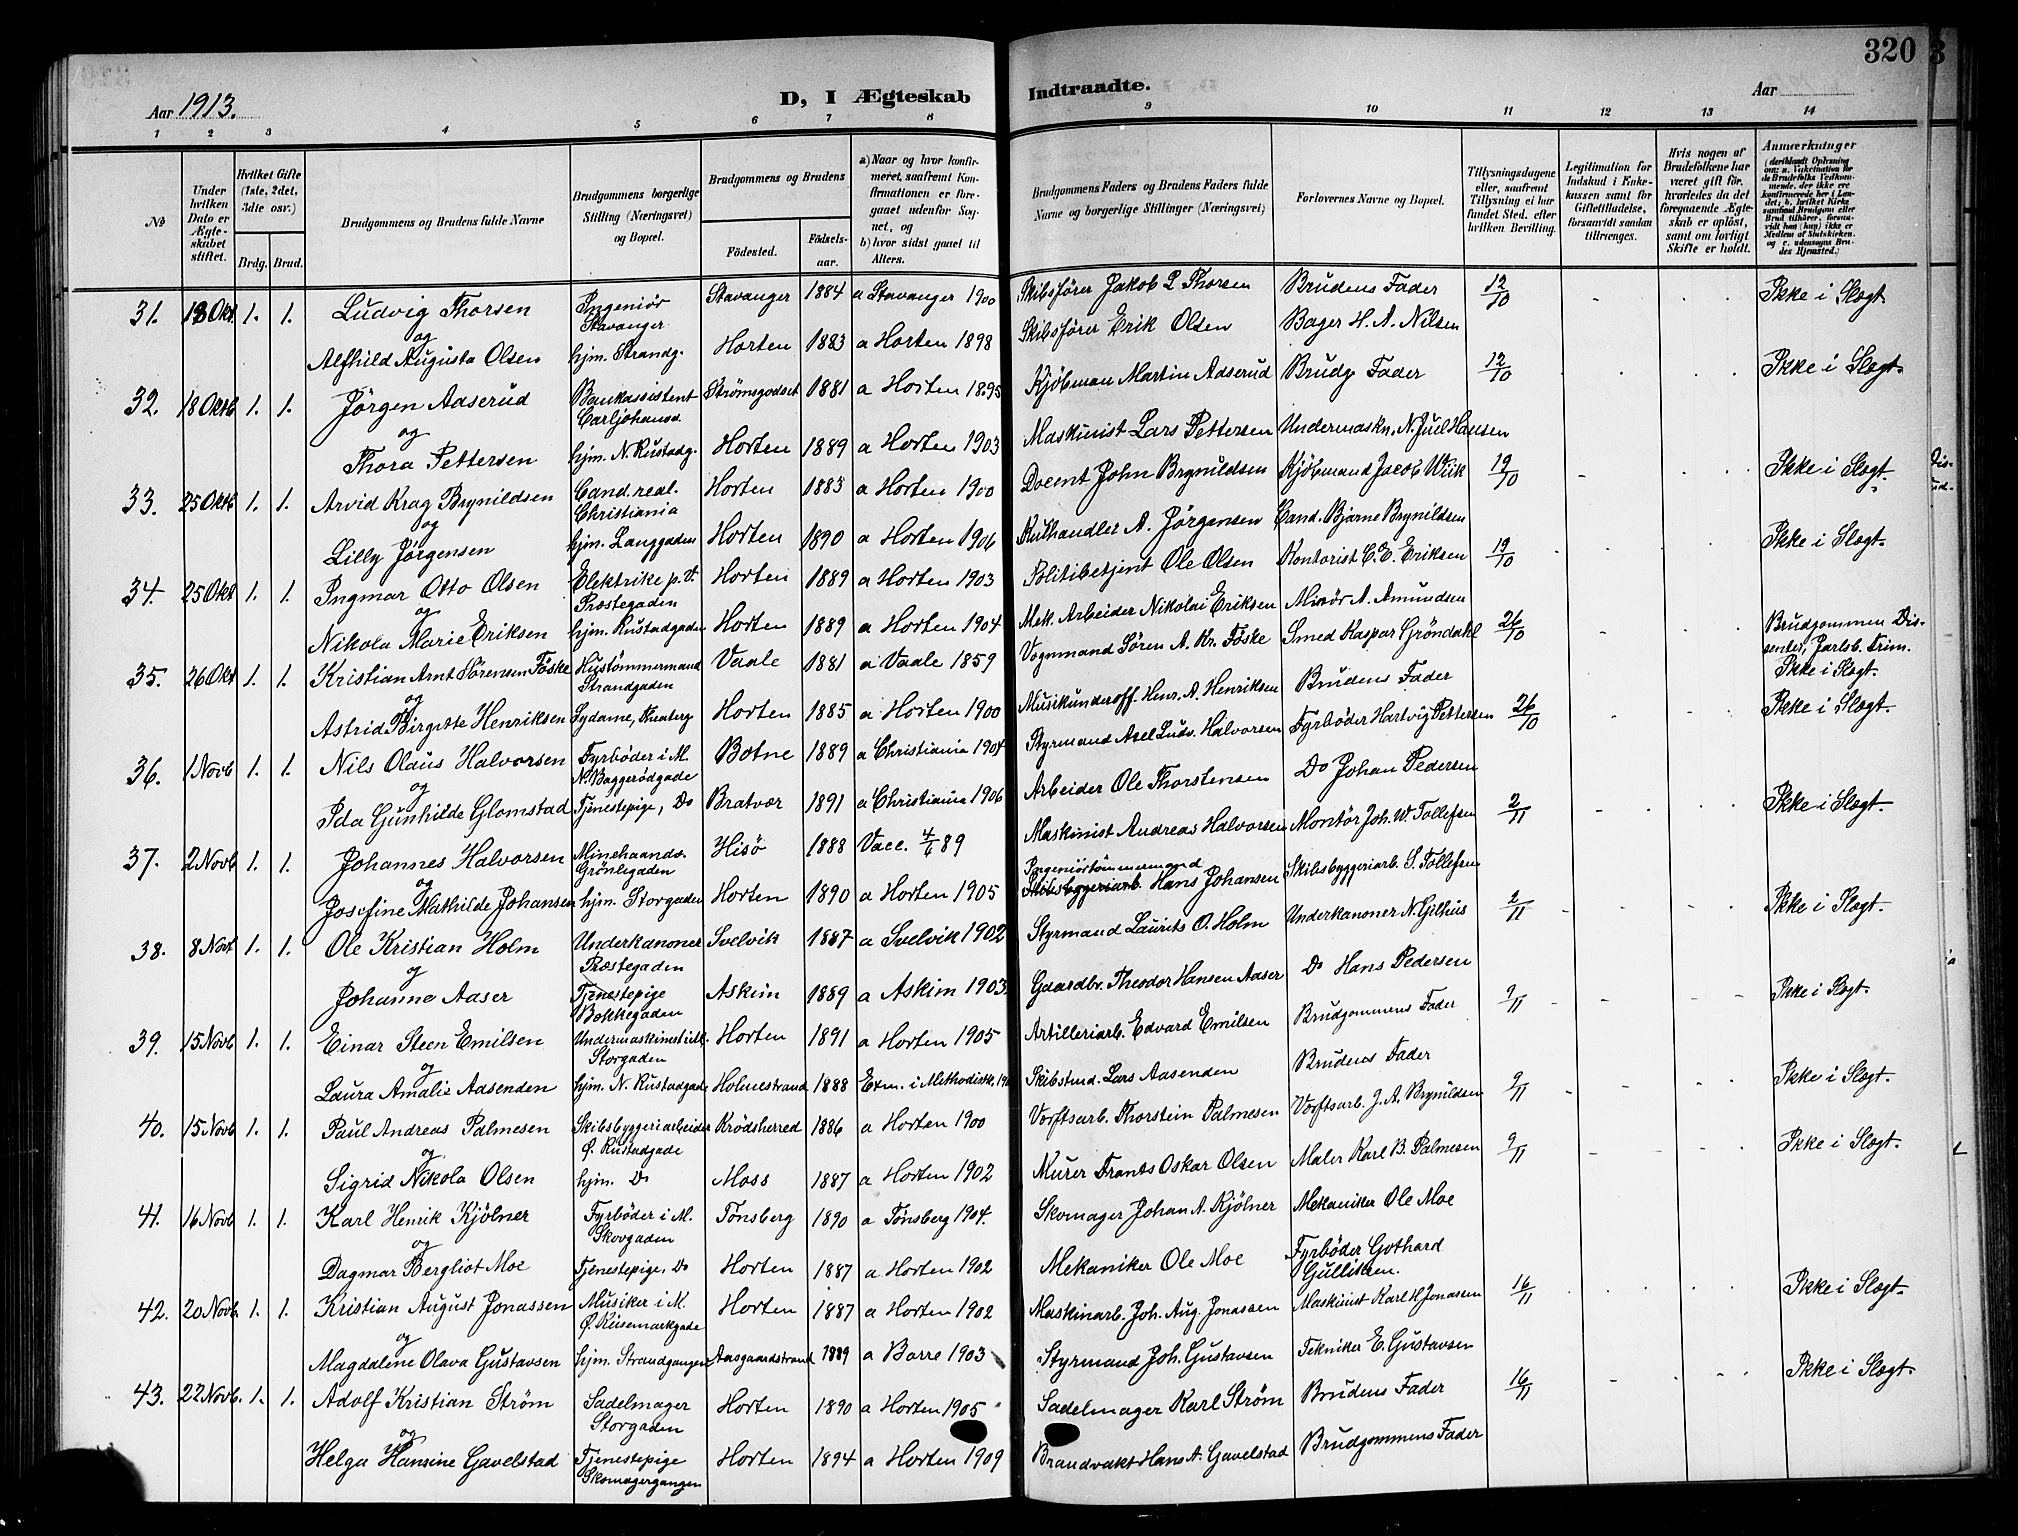 320
Aar 1913.
D, I Ægteskab Indtraadte.
Aar
1 2 3 4 5 6 7 8 9 10 11 12 13 14
No
Under hvilken Dato er Ægteskabet stiftet.
Hvilket Gifte (1ste, 2det, 3die osv.)
Brdg. Brud.
Brudgommens og Brudens fulde Navne
Brudgommens borgerlige Stilling (Næringsvei) og Bopæl.
Brudgommens og Brudens
Födested. Födsels-aar.
a) Naar og hvor konfirmeret, saafremt Konfirmationen er foregaaet udenfor Sognet, og b) hvor sidst gaaet til Alters.
Brudgommens Faders og Brudens Faders fulde Navne og borgerlige Stillinger (Næringsvei)
Forlovernes Navne og Bopæl.
Tillysningsdagene eller, saafremt Tillysning ei har fundet Sted, efter hvilken Bevilling.
Legitimation for Indskud i Enkekassen samt for Giftetilladelse, forsaavidt saadan tiltrænges.
Hvis nogen af Brudefolkene har været gift før, hvorledes da det foregaaende Ægteskab er opløst, samt om lovligt Skifte er holdt.
Anmærkninger
31. 18 Okt 1. 1. Ludvig Thorsen Ingeniör Stavanger Stavanger 1884 a Stavanger 1900 Skibsfører Jakob L Thorsen Brudens Fader 12/10 - - Ikke i Slægt
og
Alfhild Augusta Olsen hjm. Strandg. Horten 1883 a Horten 1898 Skibsfører Erik Olsen Bager H. A. Nilsen
32. 18 Oktb 1. 1. Jörgen Aaserud Bankassistent Carljohansv. Strömsgodset 1881 a Horten 1895 Kjöbman Martin Aaserud Brudg Fader 12/10 Ikke i Slægt.
og
Thora Pettersen hjm. N. Rustadg. Horten 1889 a Horten 1903 Maskinist Lars Pettersen Undermaskn. N. Juel Hansen
33. 25 Oktb 1. 1. Arvid Krag Brynildsen Cand. real. Christiania Horten 1883 a Horten 1900 Docent John Brynildsen Kjöbmand Jacob Wiik 19/10 - Ikke i Slægt.
og
Lilly Jörgensen hjm. Langgaden Horten 1890 a Horten 1906 Kulhandler A. Jörgensen Cand. Bjarne Brynildsen
34. 25 Okt 1. 1. Ingmar Otto Olsen Elektrike p. V. Præstegaden Horten 1889 a Horten 1903 Politibetjent Ole Olsen Kontorist C. E. Eriksen 19/10 Ikke i Slægt.
og
Nikola Marie Eriksen hjm. Rustadgaden Horten 1889 a Horten 1904 Mek. Arbeider Nikolai Eriksen Minör A. Amundsen
35. 26 Okt 1. 1. Kristian Arnt Sörensen Föske Hustömmermand Strandgaden Vaale 1881 a Vaale 1859 Vognmand Sören A. Kr. Föske Smed Kaspar Gröndahl 26/10 - Brudgommen Dissenter, Jarlsb. Frim. Ikke i Slægt.
og
Astrid Birgitte Henriksen Sydame, Horten 1885 a Horten 1900 Musikunderoff. Henr. A. Henriksen Brudens Fader
36. 1 Novb 1. 1. Nils Olaus Halvorsen Fyrböder i M. N. Baggerödgade Botne 1889 a Christiania 1904 Styrmand Axel Ludv. Halvorsen Fyrböder Hartvig Pettersen 26/10 Ikke i Slægt.
og
Ida Gunhilde Glomstad Tjenestepige, Do Bratvær 1891 a Christiania 1906 Arbeider Ole Thorstensen Do Johan Pedersen
37. 2 Novb 1. 1. Johannes Halvorsen Minehaandv. Grönligaden Hisö 1888 Vacc. 4/6 89 Maskinist Andreas Halvorsen Montör Joh. W. Tollefsen 2/11 Ikke i Slægt.
og
Josefine Mathilde Johansen hjm. Storgaden Horten 1890 a Horten 1905 Ingeniörtömmermand Skibsbyggeriarb. Hans Johansen Skibsbyggeriarb. S. Tollefsen
38. 8 Novb 1. 1. Ole Kristian Holm Underkanoner Præstegaden Svelvik 1887 a Svelvik 1902 Styrmand Laurits O. Holm Underkanoner N. Gilhus 2/11 - Ikke i Slægt.
og
Johanne Aaser Tjenestepige Bakkegaden Askim 1889 a Askim 1903. Gaardbr. Theodor Hansen Aaser Do Hans Pedersen
39. 15 Novb 1. 1. Einar Steen Emilsen Undermaskinist Storgaden Horten 1891 a Horten 1905 Artilleriarb. Edvard Emilsen Brudgommens Fader 9/11 - Ikke i Slægt.
og
Laura Amalie Aasenden hjm. N. Rustadgade Holmestrand 1888 Exm. i Methodistk. Skibstmd. Lars Aasenden Brudens Fader
40. 15 Novb 1. 1. Paul Andreas Palmesen Skibsbyggeriarbeider Ø. Rustadgade Krödsherred 1886 a Horten 1900 Verftsarb. Thorstein Palmesen Verftsarb. J. A. Brynildsen 9/11 - Ikke i Slægt.
og
Sigrid Nikola Olsen hjm. Do Moss 1887 a Horten 1902 Murer Frants Oskar Olsen Maler Karl B. Palmesen
41. 16 Novb 1. 1. Karl Henrik Kjölner Fyrböder i M. Skovgaden Tönsberg 1890 a Tönsberg 1904. Skomager Johan A. Kjölner Mekaniker Ole Moe 9/11 - Ikke i Slægt.
og
Dagmar Bergliot Moe Tjenestepige, Do Horten 1887 a Horten 1902 Mekaniker Ole Moe Fyrböder Gothard Gulliksen.
42. 20 Novb 1. 1. Kristian August Jonassen Musiker i M. Ø. Keisemarkgade Horten 1887 a Horten 1902 Maskinarb. Joh. Aug. Jonassen Maskinist Karl H Jonassen 16/11 Ikke i Slægt.
og
Magdalene Olava Gustavsen hjm. Strandgangen Aasgaardstrand 1889 a Borre 1903 Styrmand Joh. Gustavsen Tekniker E. Gustavsen
43. 22 Novb. 1. 1. Adolf Kristian Ström Sadelmager Storgaden Horten 1890 a Horten 1905 Sadelmager Karl Ström Brudens Fader 16/11 - Ikke i Slægt.
og
Helga Hansine Gavelstad Tjenestepige Skomagergangen Horten 1894 a Horten 1909 Brandvakt Hans A. Gavelstad Brudgommens Fader